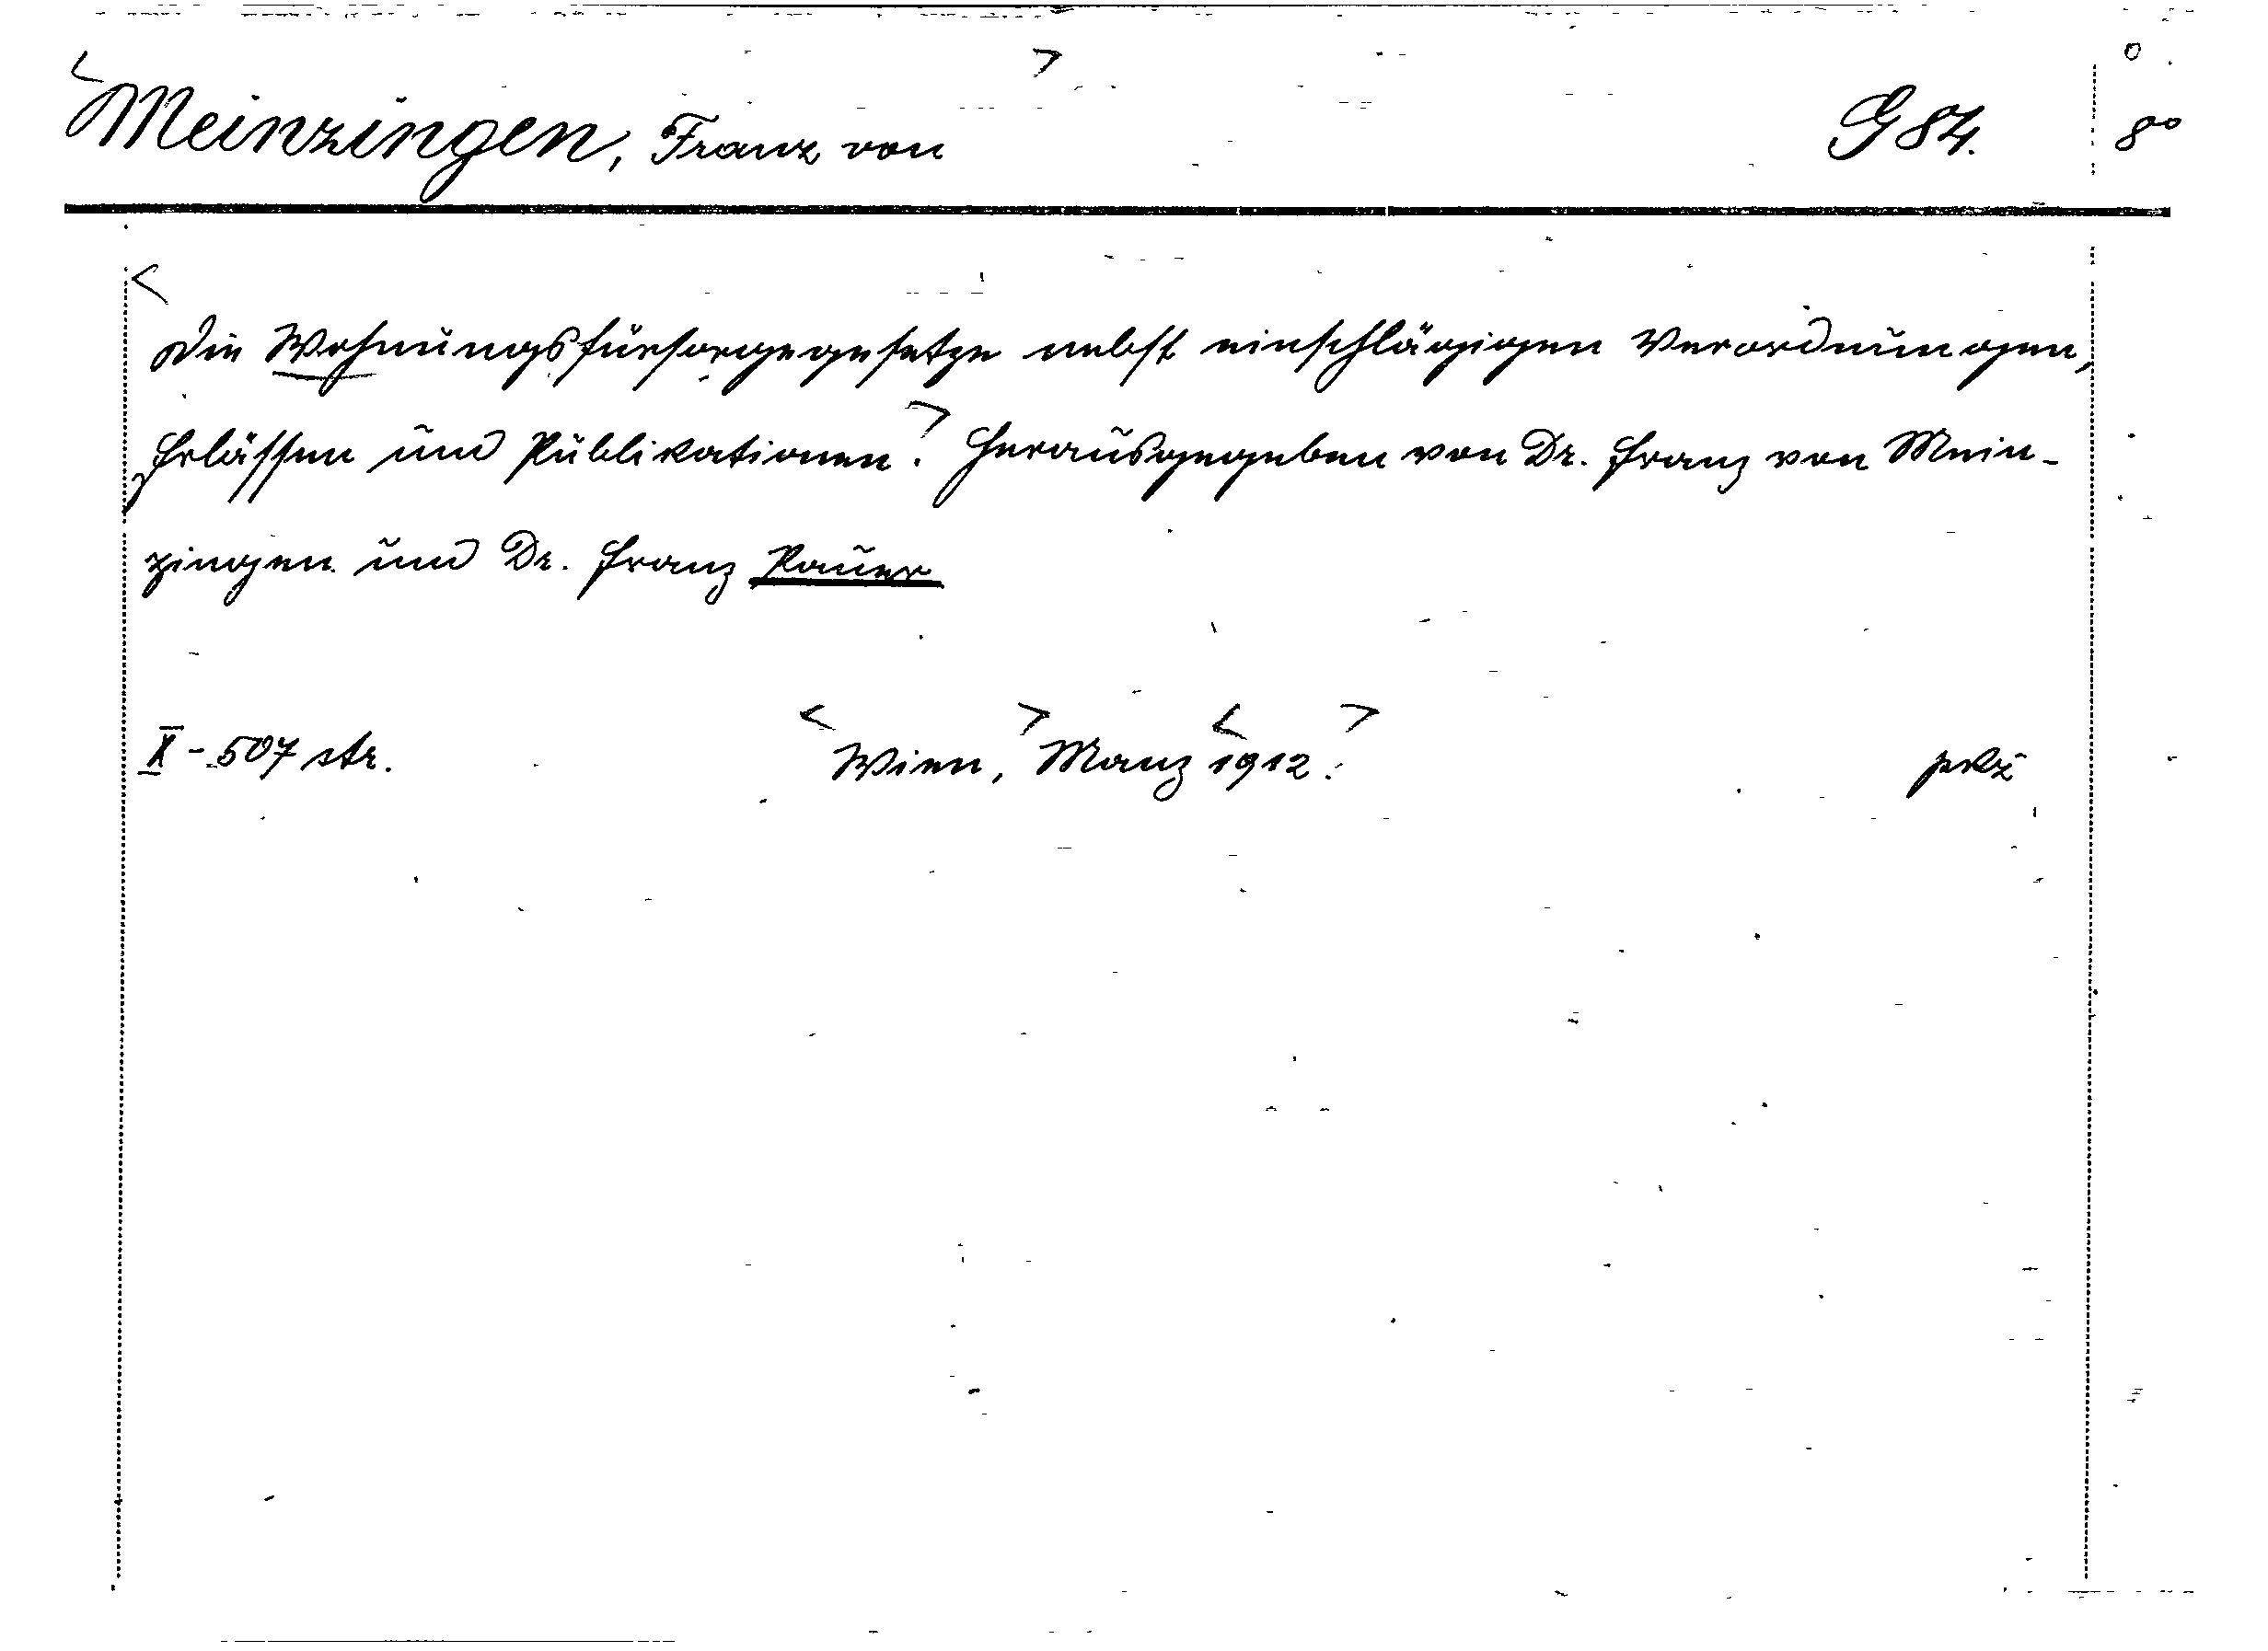 Meinzingen, Franz von G 84. 8°
Die Wohnungsfürsorgegesetze nebst einschlägigen Verordnungen,
Erlässen und Publikationen. Herausgegeben von Dr. Franz von Mein-
zingen und Dr. Franz Pauer
X - 507 str. Wien, Manz 1912.